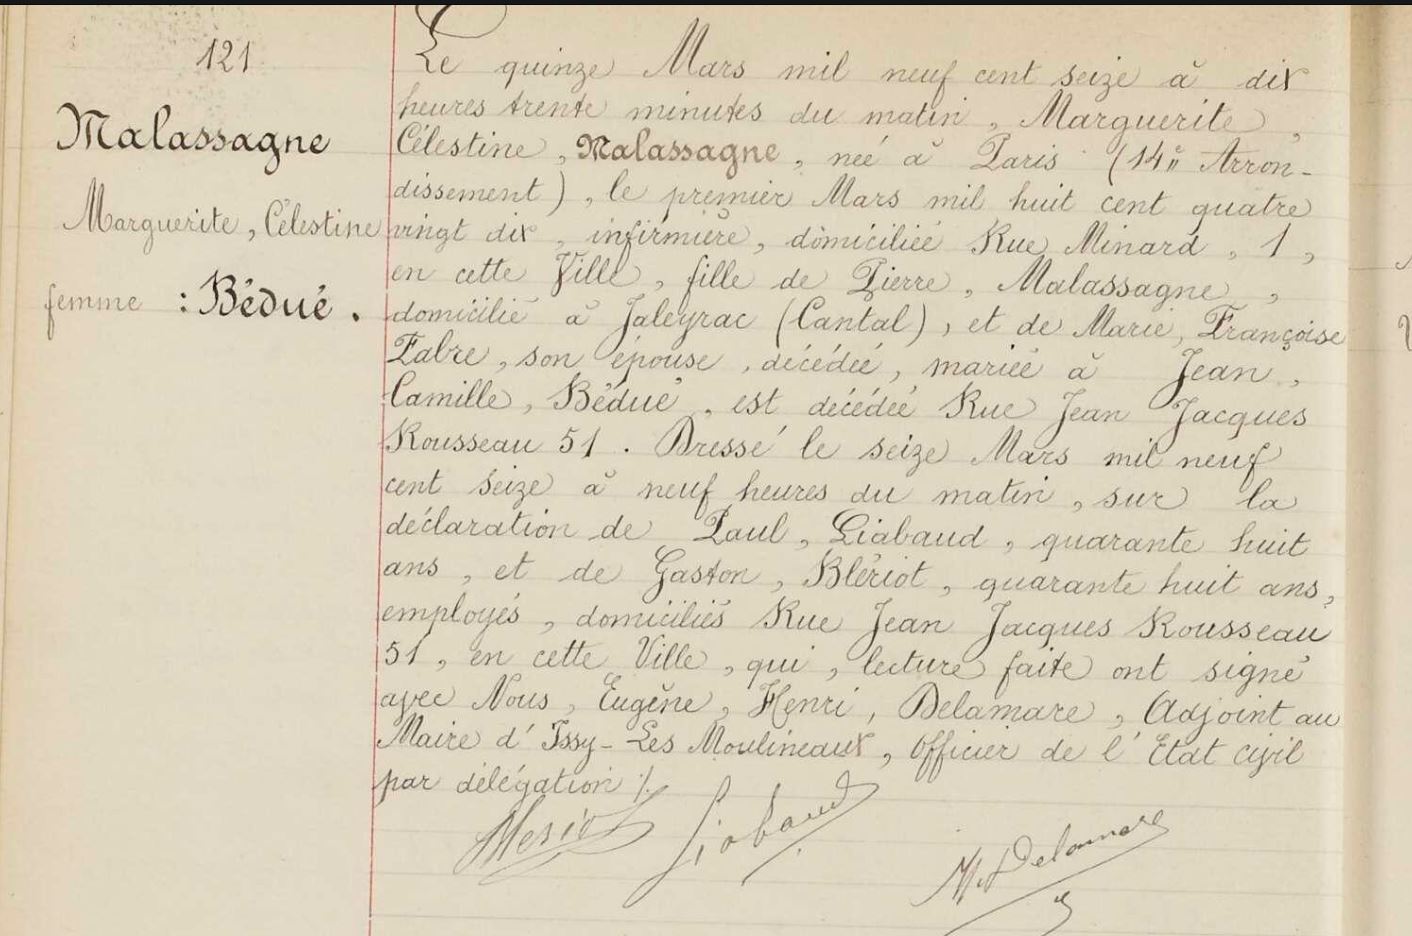 121
Malassagne
Marguerite, Célestine
femme : Bédué.
Le quinze Mars mil neuf cent seize à dix
heures trente minutes du matin, Marguerite,
Célestine, Malassagne, née à Paris (14è Arron-
dissement), le premier Mars mil huit cent quatre
vingt dix, infirmière, domiciliée Rue Minard, 1,
en cette Ville, fille de Pierre, Malassagne,
domicilié à Jaleyrac (Cantal), et de Marie, Françoise
Fabre, son épouse, décédée, mariée à Jean,
Camille, Bédué, est décédée Rue Jean Jacques
Rousseau 51. Dressé le seize Mars mil neuf
cent seize à neuf heures du matin, sur la
déclaration de Paul, Giabaud, quarante huit
ans, et de Gaston, Blériot, quarante huit ans,
employés, domiciliés Rue Jean Jacques Rousseau
51, en cette Ville, qui, lecture faite ont signé
avec Nous, Eugène, Henri, Delamare, Adjoint au
Maire d'Issy-Les Moulineaux, Officier de l'Etat civil
par délégation ./.
Giabaud
Delamare